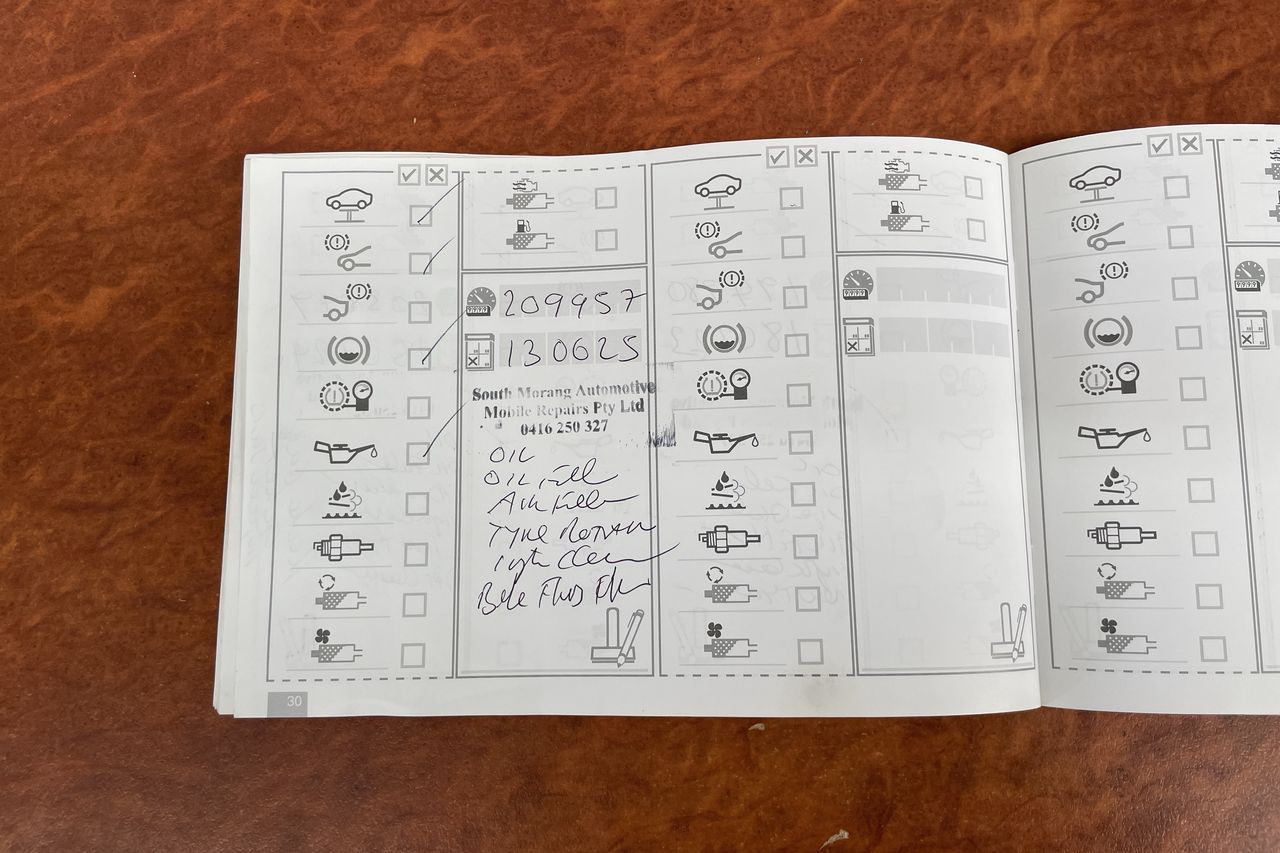 209957
130625
South Morang Automotive
Mobile Repairs Pty Ltd
0416 250 327
OIL
OIL Fill
AIR Filler
TYRE
Clean
30